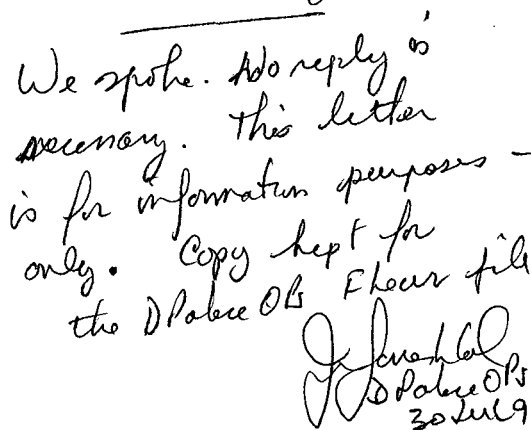 We spoke. No reply is
necessary. This letter
is for information purposes -
only. Copy kept for
the DPolice OPs file
DPolice OPs
30 Jul 9